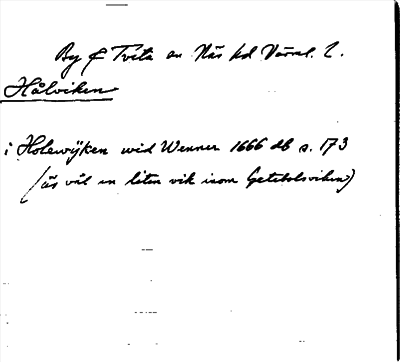 By f Tveta en Näs hd Värml. l.
Hålviken
i Holewijken wid Wenner 1666 db s. 173
(är väl en liten vik inom Getebolsviken)